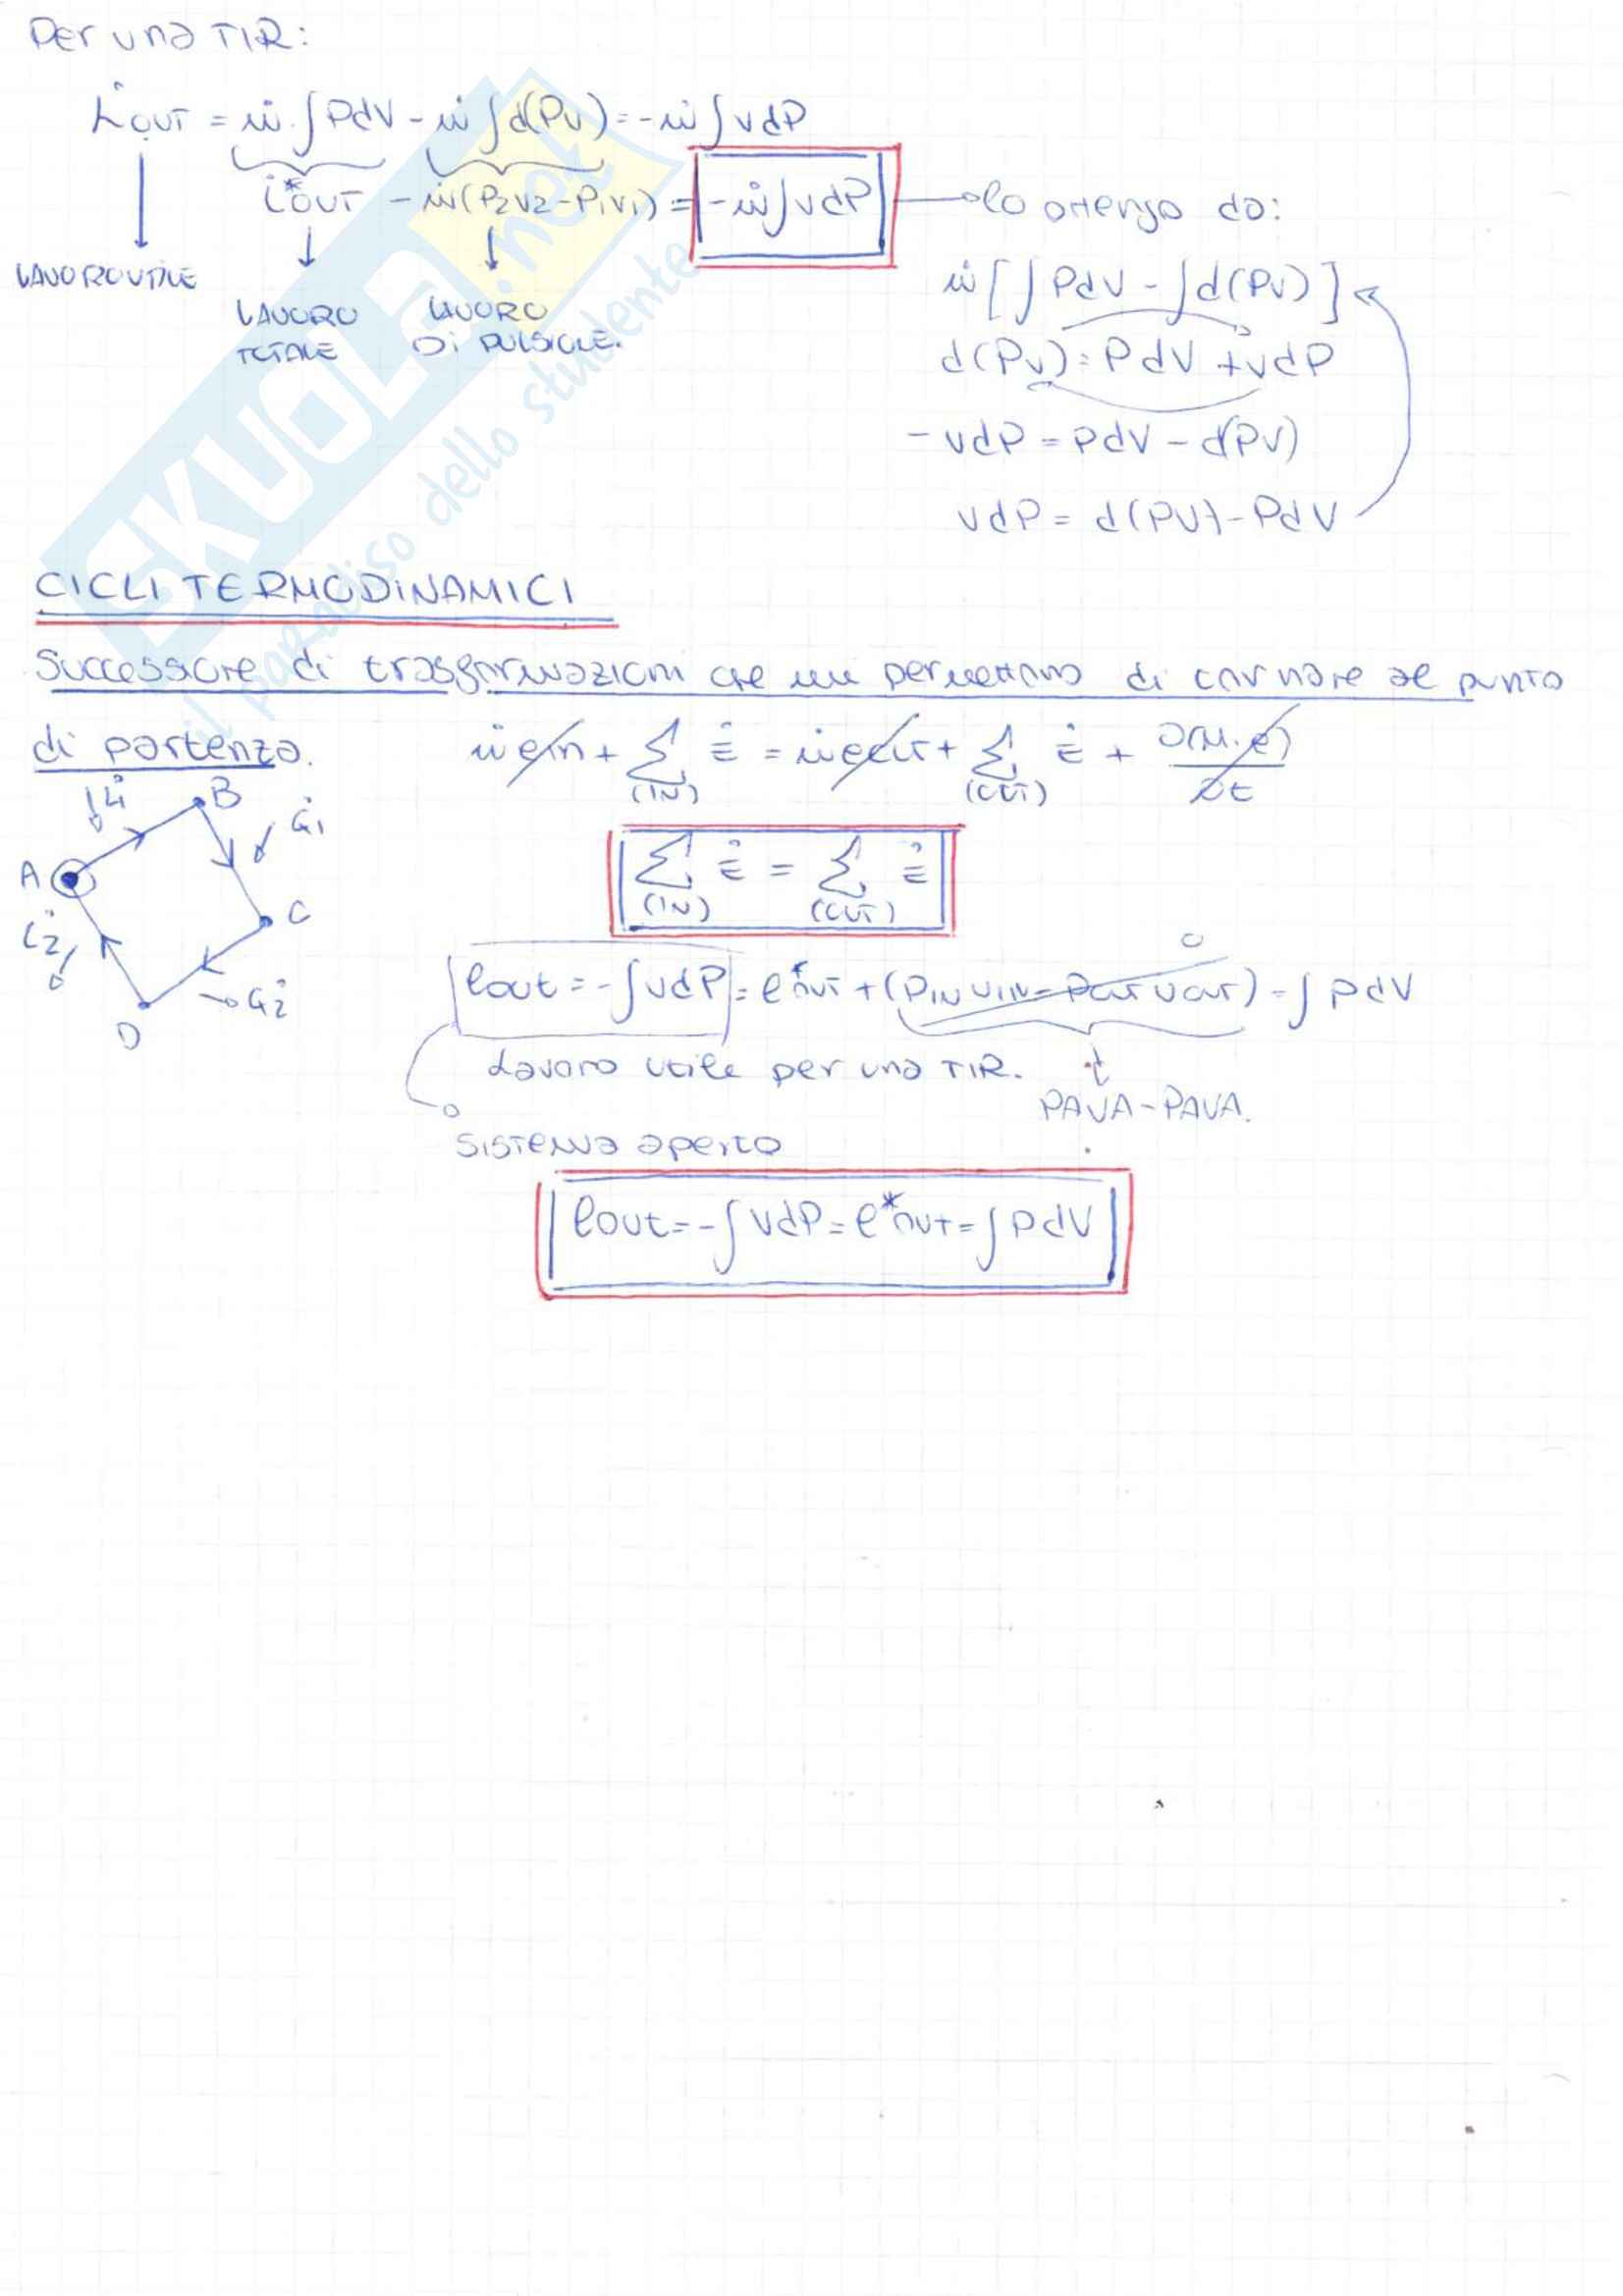 Per una TIR:
L̇OUT = ṁ ∫PdV - ṁ ∫d(PV) = -ṁ ∫vdP
L̇*OUT - ṁ(P2V2-P1V1) = -ṁ∫vdP lo ottengo da:
LAVORO UTILE
LAVORO TOTALE
LAVORO DI PULSIONE.
ṁ [∫PdV - ∫d(PV)]
d(PV) = PdV + vdP
- vdP = PdV - d(PV)
vdP = d(PV) - PdV
CICLI TERMODINAMICI
Successione di trasformazioni che mi permettono di tornare al punto
di partenza.
ṁ ein + Σ(IN) Ė = ṁ eout + Σ(OUT) Ė + ∂(M·e)/∂t
L̇1 B Q̇1
A
L̇2 C
Q̇2
D
Σ(IN) Ė = Σ(OUT) Ė
lout = -∫vdP = l*out + (PIN VIN - POUT VOUT) = ∫PdV
0
Lavoro utile per una TIR.
PAVA-PAVA.
Sistema aperto
lout = -∫vdP = l*out = ∫PdV
SKUOLA.net
il paradiso dello studente